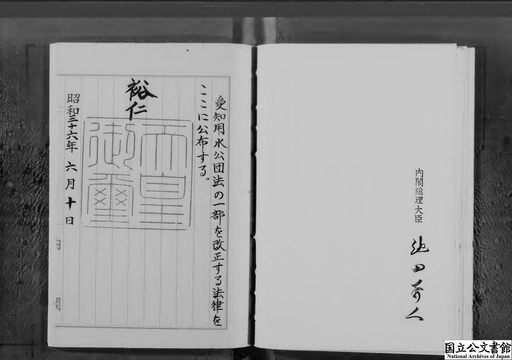 愛知用水公団法の一部を改正する法律を
ここに公布する。
裕仁
天皇
御璽
昭和三十六年 六月 十日
内閣総理大臣
池田勇人
国立公文書館
National Archives of Japan